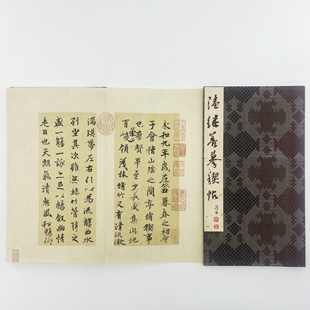 陸繼善摹禊帖
永和九年歲在癸丑暮春之初會
于會稽山陰之蘭亭脩稧事
也羣賢畢至少長咸集此地
有崇山峻領茂林脩竹又有清流激
湍暎帶左右引以為流觴曲水
列坐其次雖無絲竹管弦之
盛一觴一詠亦足以暢叙幽情
是日也天朗氣清惠風和暢仰